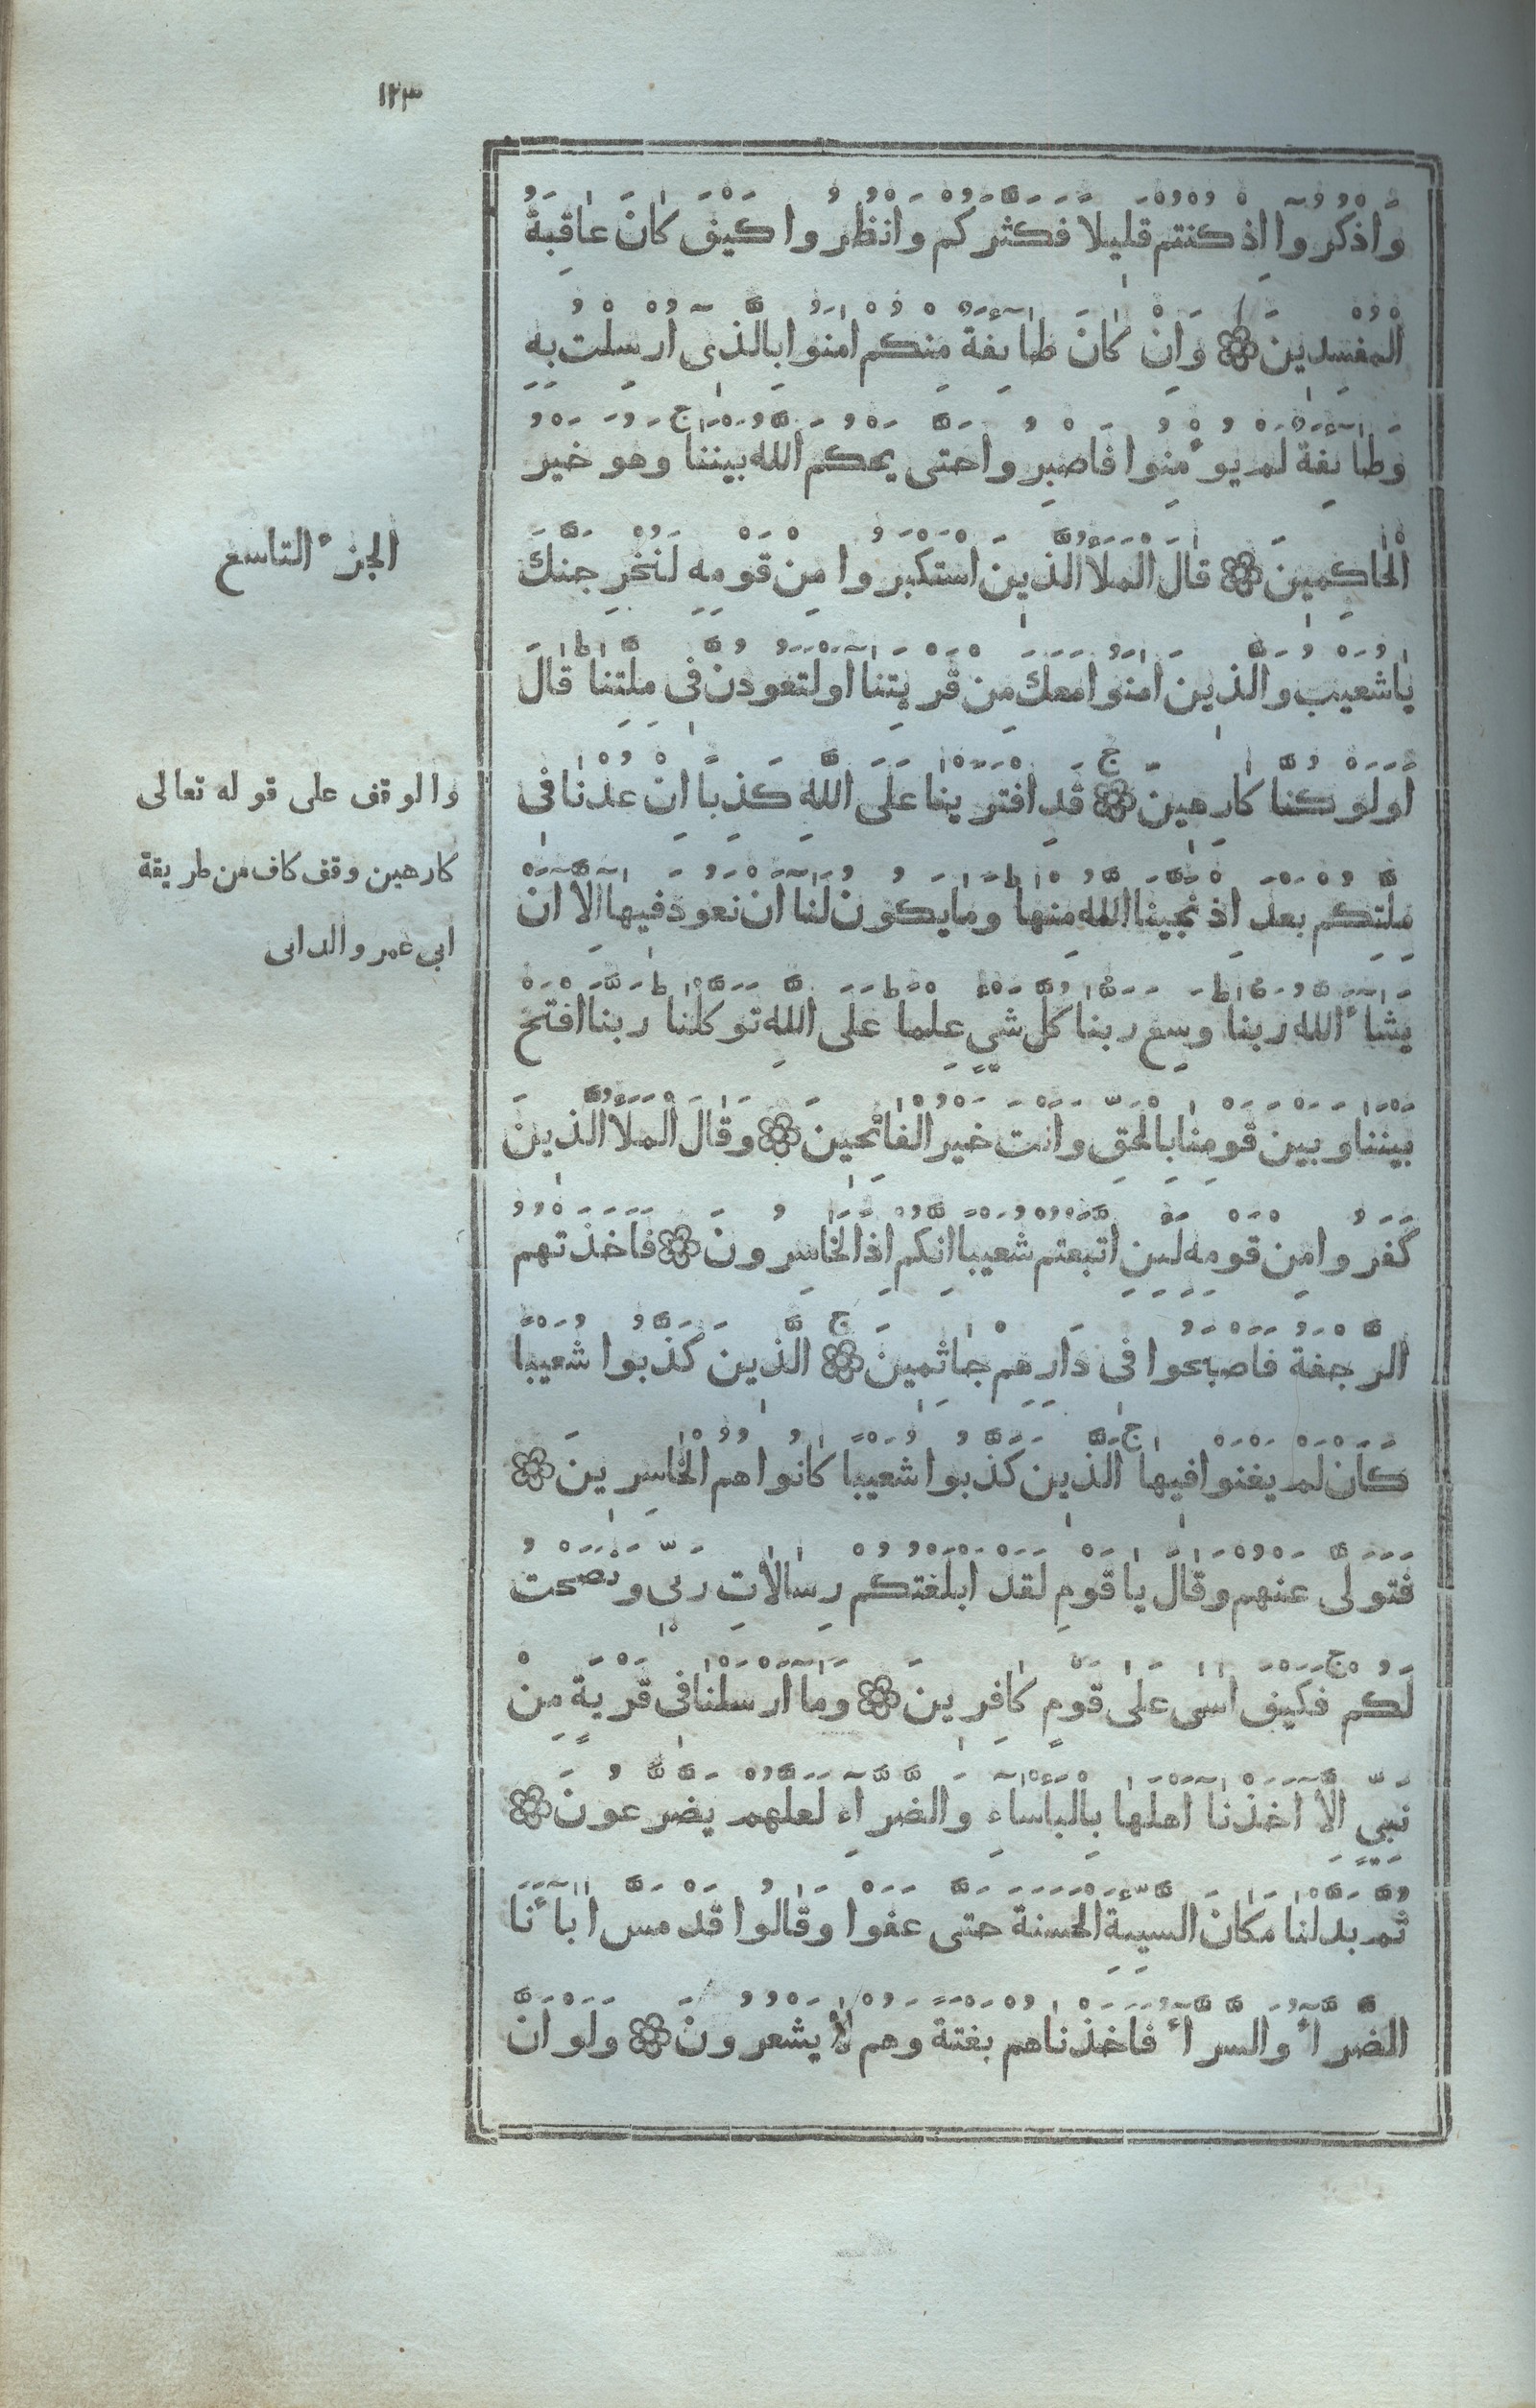 ١٢٣
وَاذْكُرُوٓا اِذْ كُنْتُمْ قَلٖيلًا فَكَثَّرَكُمْ وَانْظُرُوا كَيْفَ كَانَ عَاقِبَةُ
الْمُفْسِدٖينَ وَاِنْ كَانَ طَائِفَةٌ مِنْكُمْ اٰمَنُوا بِالَّذٖٓى اُرْسِلْتُ بِهٖ
وَطَائِفَةٌ لَمْ يُؤْمِنُوا فَاصْبِرُوا حَتّٰى يَحْكُمَ اللّٰهُ بَيْنَنَا ج وَهُوَ خَيْرُ
الْحَاكِمٖينَ قَالَ الْمَلَأُ الَّذٖينَ اسْتَكْبَرُوا مِنْ قَوْمِهٖ لَنُخْرِجَنَّكَ
يَا شُعَيْبُ وَالَّذٖينَ اٰمَنُوا مَعَكَ مِنْ قَرْيَتِنَا اَوْ لَتَعُودُنَّ فٖى مِلَّتِنَا ط قَالَ
اَوَلَوْ كُنَّا كَارِهٖينَ ج قَدِ افْتَرَيْنَا عَلَى اللّٰهِ كَذِبًا اِنْ عُدْنَا فٖى
مِلَّتِكُمْ بَعْدَ اِذْ نَجّٰينَا اللّٰهُ مِنْهَا ط وَمَا يَكُونُ لَنَا اَنْ نَعُودَ فٖيهَا اِلَّآ اَنْ
يَشَاءَ اللّٰهُ رَبُّنَا ط وَسِعَ رَبُّنَا كُلَّ شَيْءٍ عِلْمًا ط عَلَى اللّٰهِ تَوَكَّلْنَا ط رَبَّنَا افْتَحْ
بَيْنَنَا وَبَيْنَ قَوْمِنَا بِالْحَقِّ وَاَنْتَ خَيْرُ الْفَاتِحٖينَ وَقَالَ الْمَلَأُ الَّذٖينَ
كَفَرُوا مِنْ قَوْمِهٖ لَئِنِ اتَّبَعْتُمْ شُعَيْبًا اِنَّكُمْ اِذًا لَخَاسِرُونَ فَاَخَذَتْهُمُ
الرَّجْفَةُ فَاَصْبَحُوا فٖى دَارِهِمْ جَاثِمٖينَ ج الَّذٖينَ كَذَّبُوا شُعَيْبًا
كَاَنْ لَمْ يَغْنَوْا فٖيهَا ج الَّذٖينَ كَذَّبُوا شُعَيْبًا كَانُوا هُمُ الْخَاسِرٖينَ
فَتَوَلّٰى عَنْهُمْ وَقَالَ يَا قَوْمِ لَقَدْ اَبْلَغْتُكُمْ رِسَالَاتِ رَبّٖى وَنَصَحْتُ
لَكُمْ ج فَكَيْفَ اٰسٰى عَلٰى قَوْمٍ كَافِرٖينَ وَمَآ اَرْسَلْنَا فٖى قَرْيَةٍ مِنْ
نَبِيٍّ اِلَّآ اَخَذْنَآ اَهْلَهَا بِالْبَأْسَآءِ وَالضَّرَّآءِ لَعَلَّهُمْ يَضَّرَّعُونَ
ثُمَّ بَدَّلْنَا مَكَانَ السَّيِّئَةِ الْحَسَنَةَ حَتّٰى عَفَوْا وَقَالُوا قَدْ مَسَّ اٰبَآءَنَا
الضَّرَّآءُ وَالسَّرَّآءُ فَاَخَذْنَاهُمْ بَغْتَةً وَهُمْ لَا يَشْعُرُونَ وَلَوْ اَنَّ
الجزء التاسع
والوقف على قوله تعالى
كارهين وقف كاف من طريقة
ابى عمرو الدانى